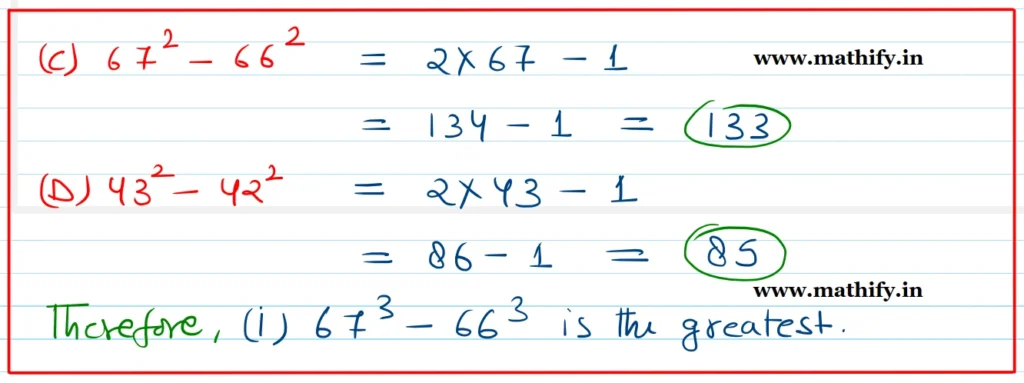 (C) 67² − 66² = 2×67 − 1 www.mathify.in
= 134 − 1 = 133
(D) 43² − 42² = 2×43 − 1
= 86 − 1 = 85
www.mathify.in
Therefore, (i) 67³ − 66³ is the greatest.